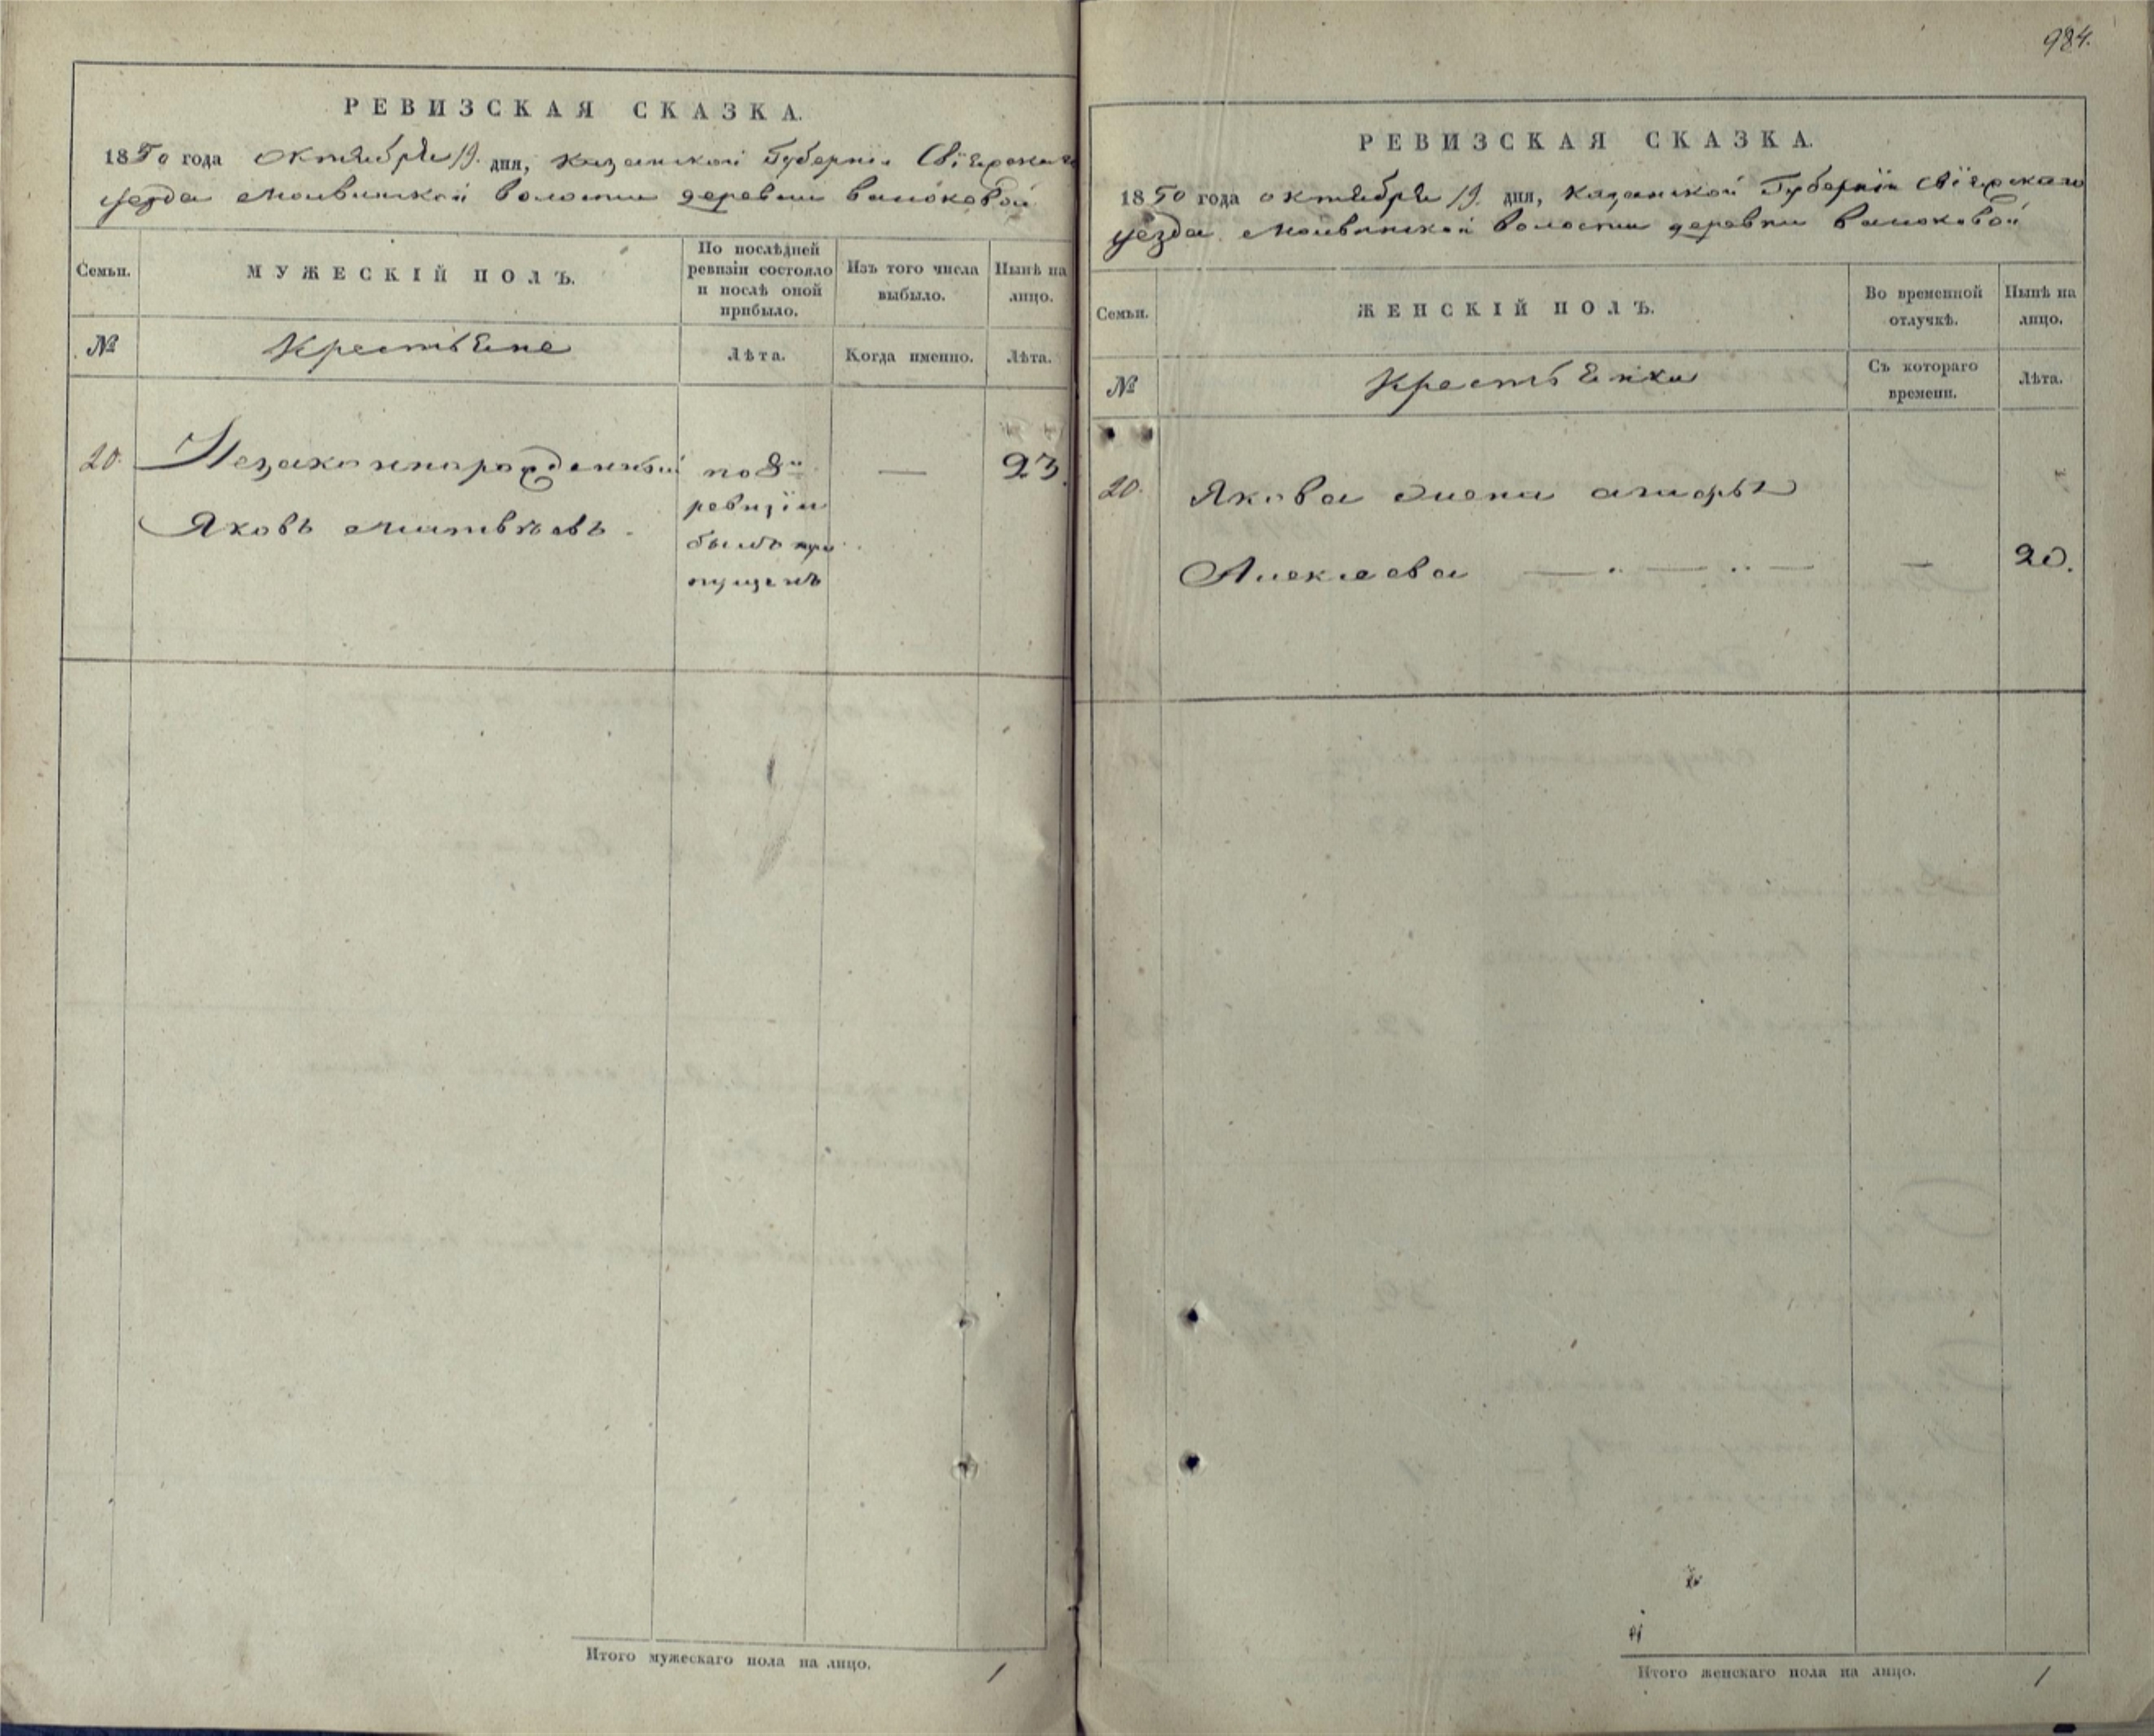 984.
РЕВИЗСКАЯ СКАЗКА.
1850 года октября 19. дня, Казанской Губернiи Свiяжскаго
уезда Моивинской волости деревни
Семьи.
МУЖЕСКІЙ ПОЛЪ.
По послѣдней ревизіи состояло и послѣ оной прибыло.
Изъ того числа выбыло.
Нынѣ на лицо.
№
Крестьяне
Лѣта.
Когда именно.
Лѣта.
20.
Незаконнорожденный
по 8й
—
23.
Яковъ Матвѣевъ.
ревизiи
былъ про
пущенъ
Итого мужескаго пола на лицо.
1
РЕВИЗСКАЯ СКАЗКА.
1850 года октября 19. дня, Казанской Губернiи Свiяжскаго
уезда Моивинской волости деревни
Семьи.
ЖЕНСКІЙ ПОЛЪ.
Во временной отлучкѣ.
Нынѣ на лицо.
№
Крестьянки
Съ котораго времени.
Лѣта.
20.
Якова жена
Алексеева
—
20.
Итого женскаго пола на лицо.
1